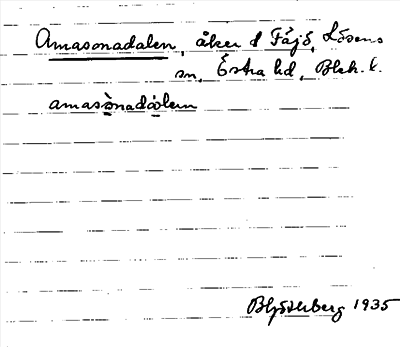 Amasonadalen, åker å Fäjö, Lösens
sn, Östra hd, Blek. l.
amasònadàlem
1935